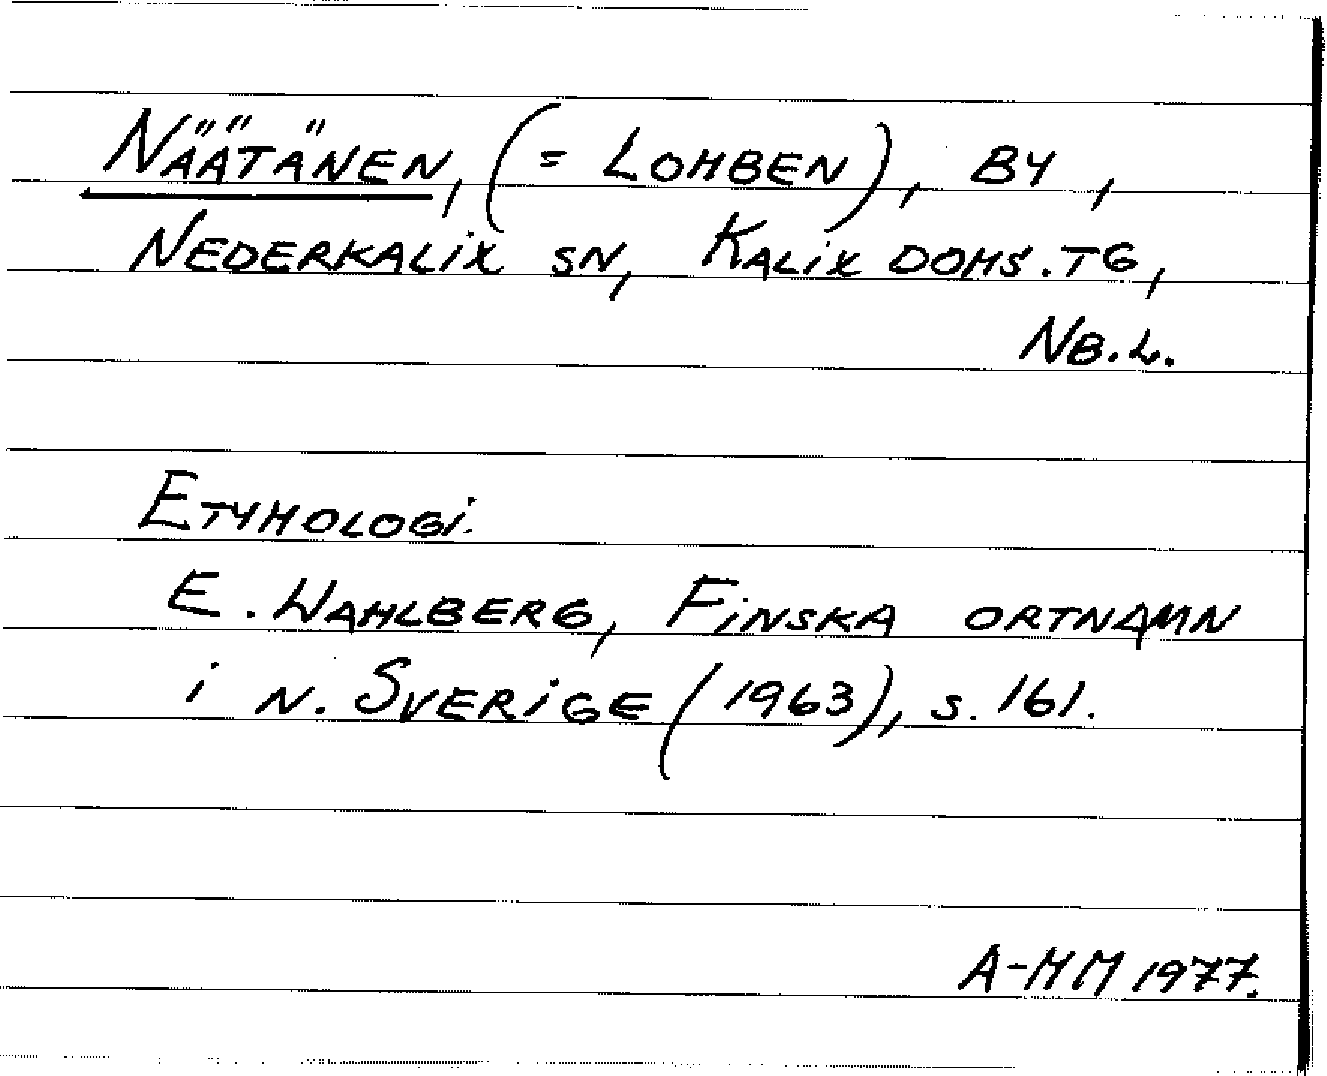 NÄÄTÄNEN, (= LOMBEN), BY,
NEDERKALIX SN, KALIX DOMS.TG,
NB.L.
ETYMOLOGI.
E. WAHLBERG, FINSKA ORTNAMN
I N. SVERIGE (1963), S. 161.
A-MM 1977.